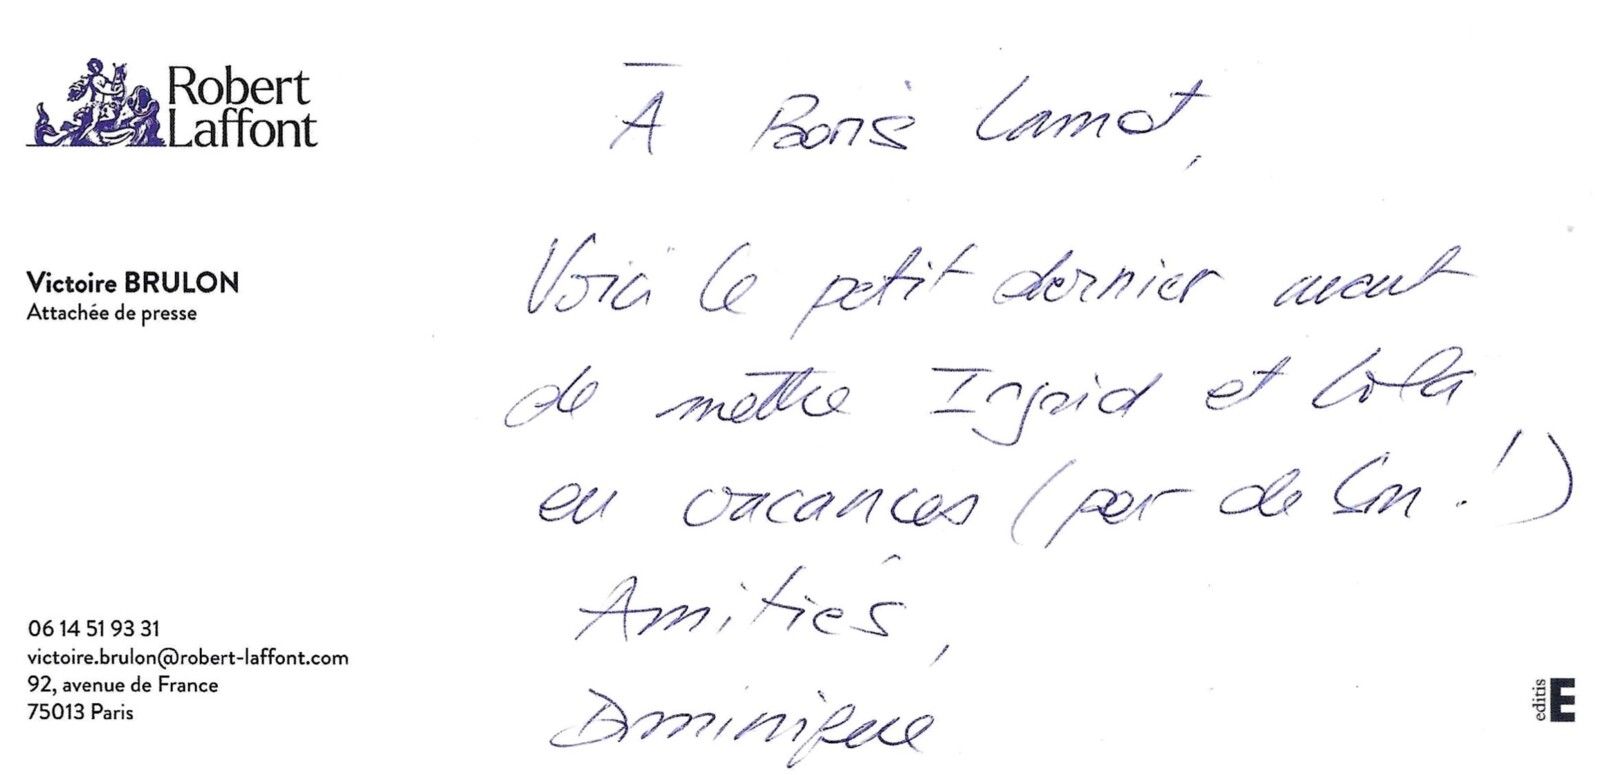 Robert
Laffont
Victoire BRULON
Attachée de presse
06 14 51 93 31
victoire.brulon@robert-laffont.com
92, avenue de France
75013 Paris
À Boris Lamot,
Voici le petit dernier avant
de mettre Ingrid et Lola
en vacances (pas de son !)
Amitiés,
Dominique
editis
E